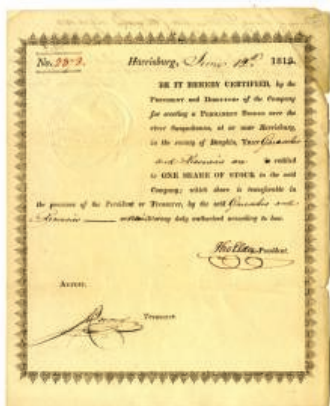 No. 
Harrisburg, June 19th 1815.
BE IT HEREBY CERTIFIED, by the
PRESIDENT and DIRECTORS of the Company
for erecting a PERMANENT BRIDGE over the
river Susquehanna, at or near Harrisburg,
in the county of Dauphin, THAT
and are is entitled
to ONE SHARE OF STOCK in the said
Company; which share is transferable in
the presence of the President or Treasurer, by the said and
attorney duly authorized according to law.
Tho Elder President.
ATTEST.
Treasurer